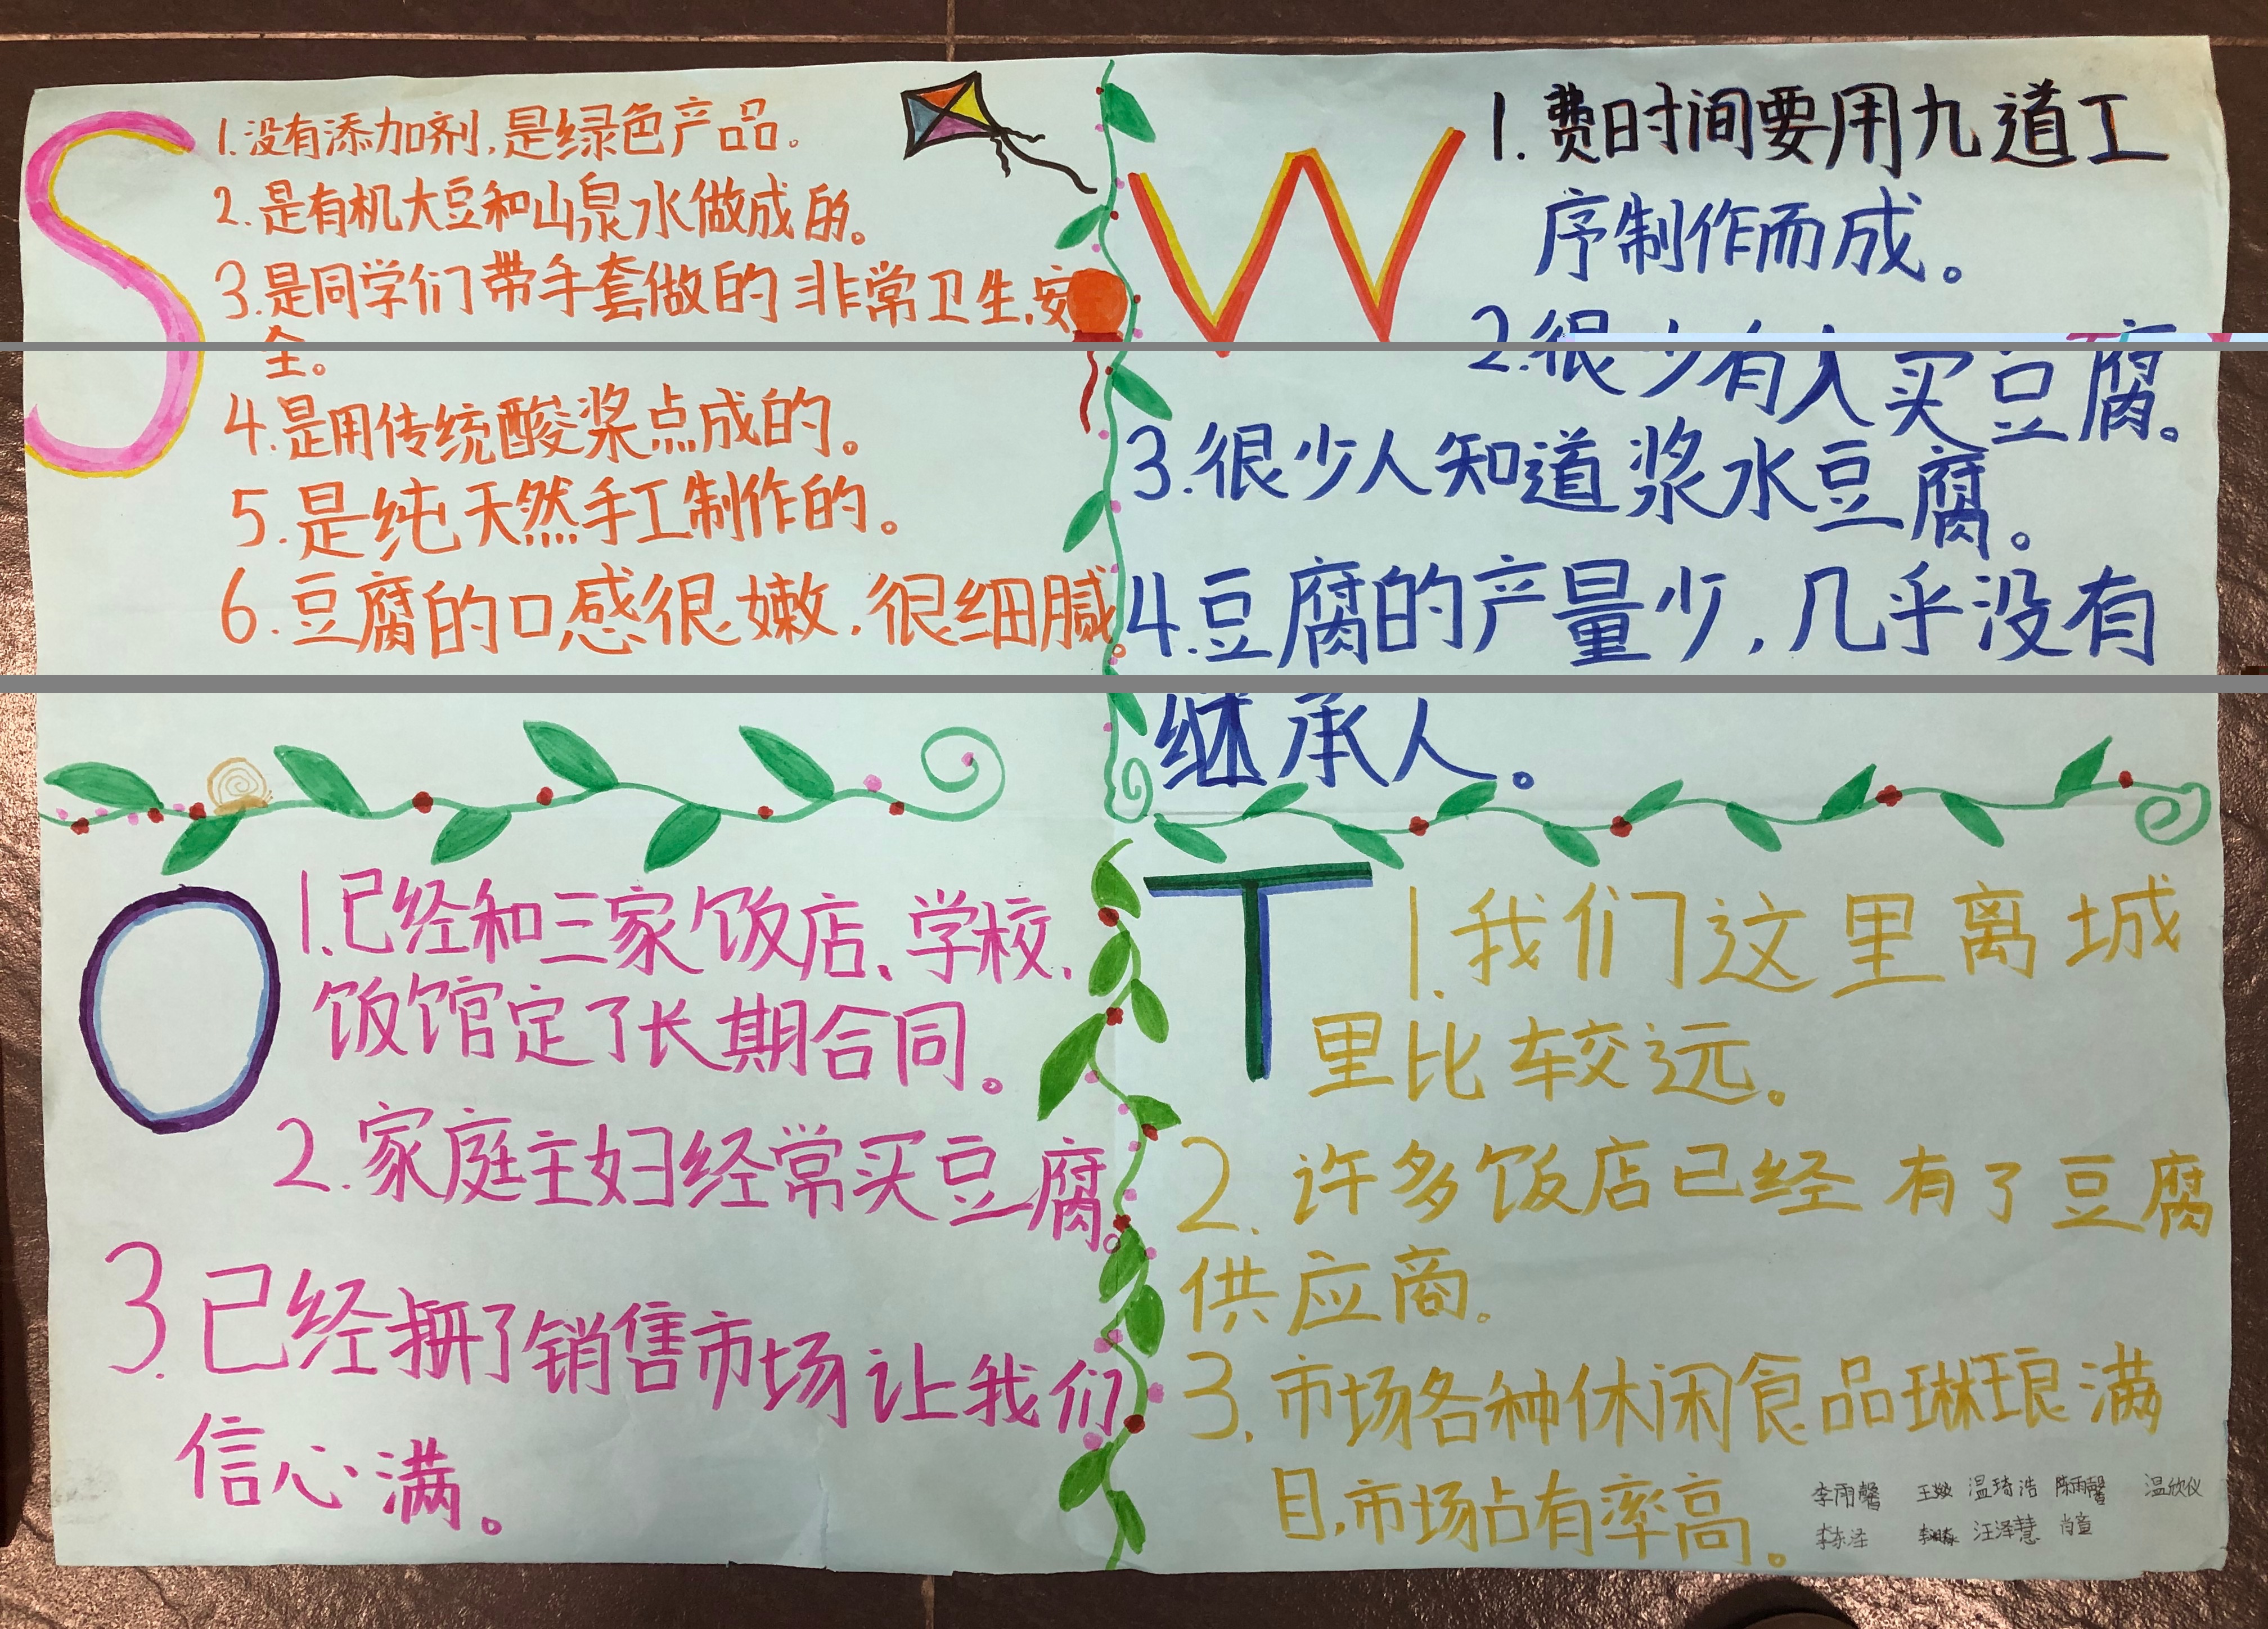 S
1.没有添加剂,是绿色产品。
2.是有机大豆和山泉水做成的。
3.是同学们带手套做的非常卫生,安
全。
4.是用传统酸浆点成的。
5.是纯天然手工制作的。
6.豆腐的口感很嫩,很细腻。
W
1.费时间要用九道工
序制作而成。
2.很少有人买豆腐。
3.很少人知道浆水豆腐。
4.豆腐的产量少,几乎没有
继承人。
O
1.已经和三家饭店、学校,
饭馆定了长期合同。
2.家庭主妇经常买豆腐。
3.已经了销售市场让我们
信心满。
T
1.我们这里离城
里比较远。
2.许多饭店已经有了豆腐
供应商。
3.市场各种休闲食品琳琅满
目,市场占有率高。
李雨馨 王敏 温琦浩 陈雨馨 温欣仪
李东泽 汪泽慧 肖童